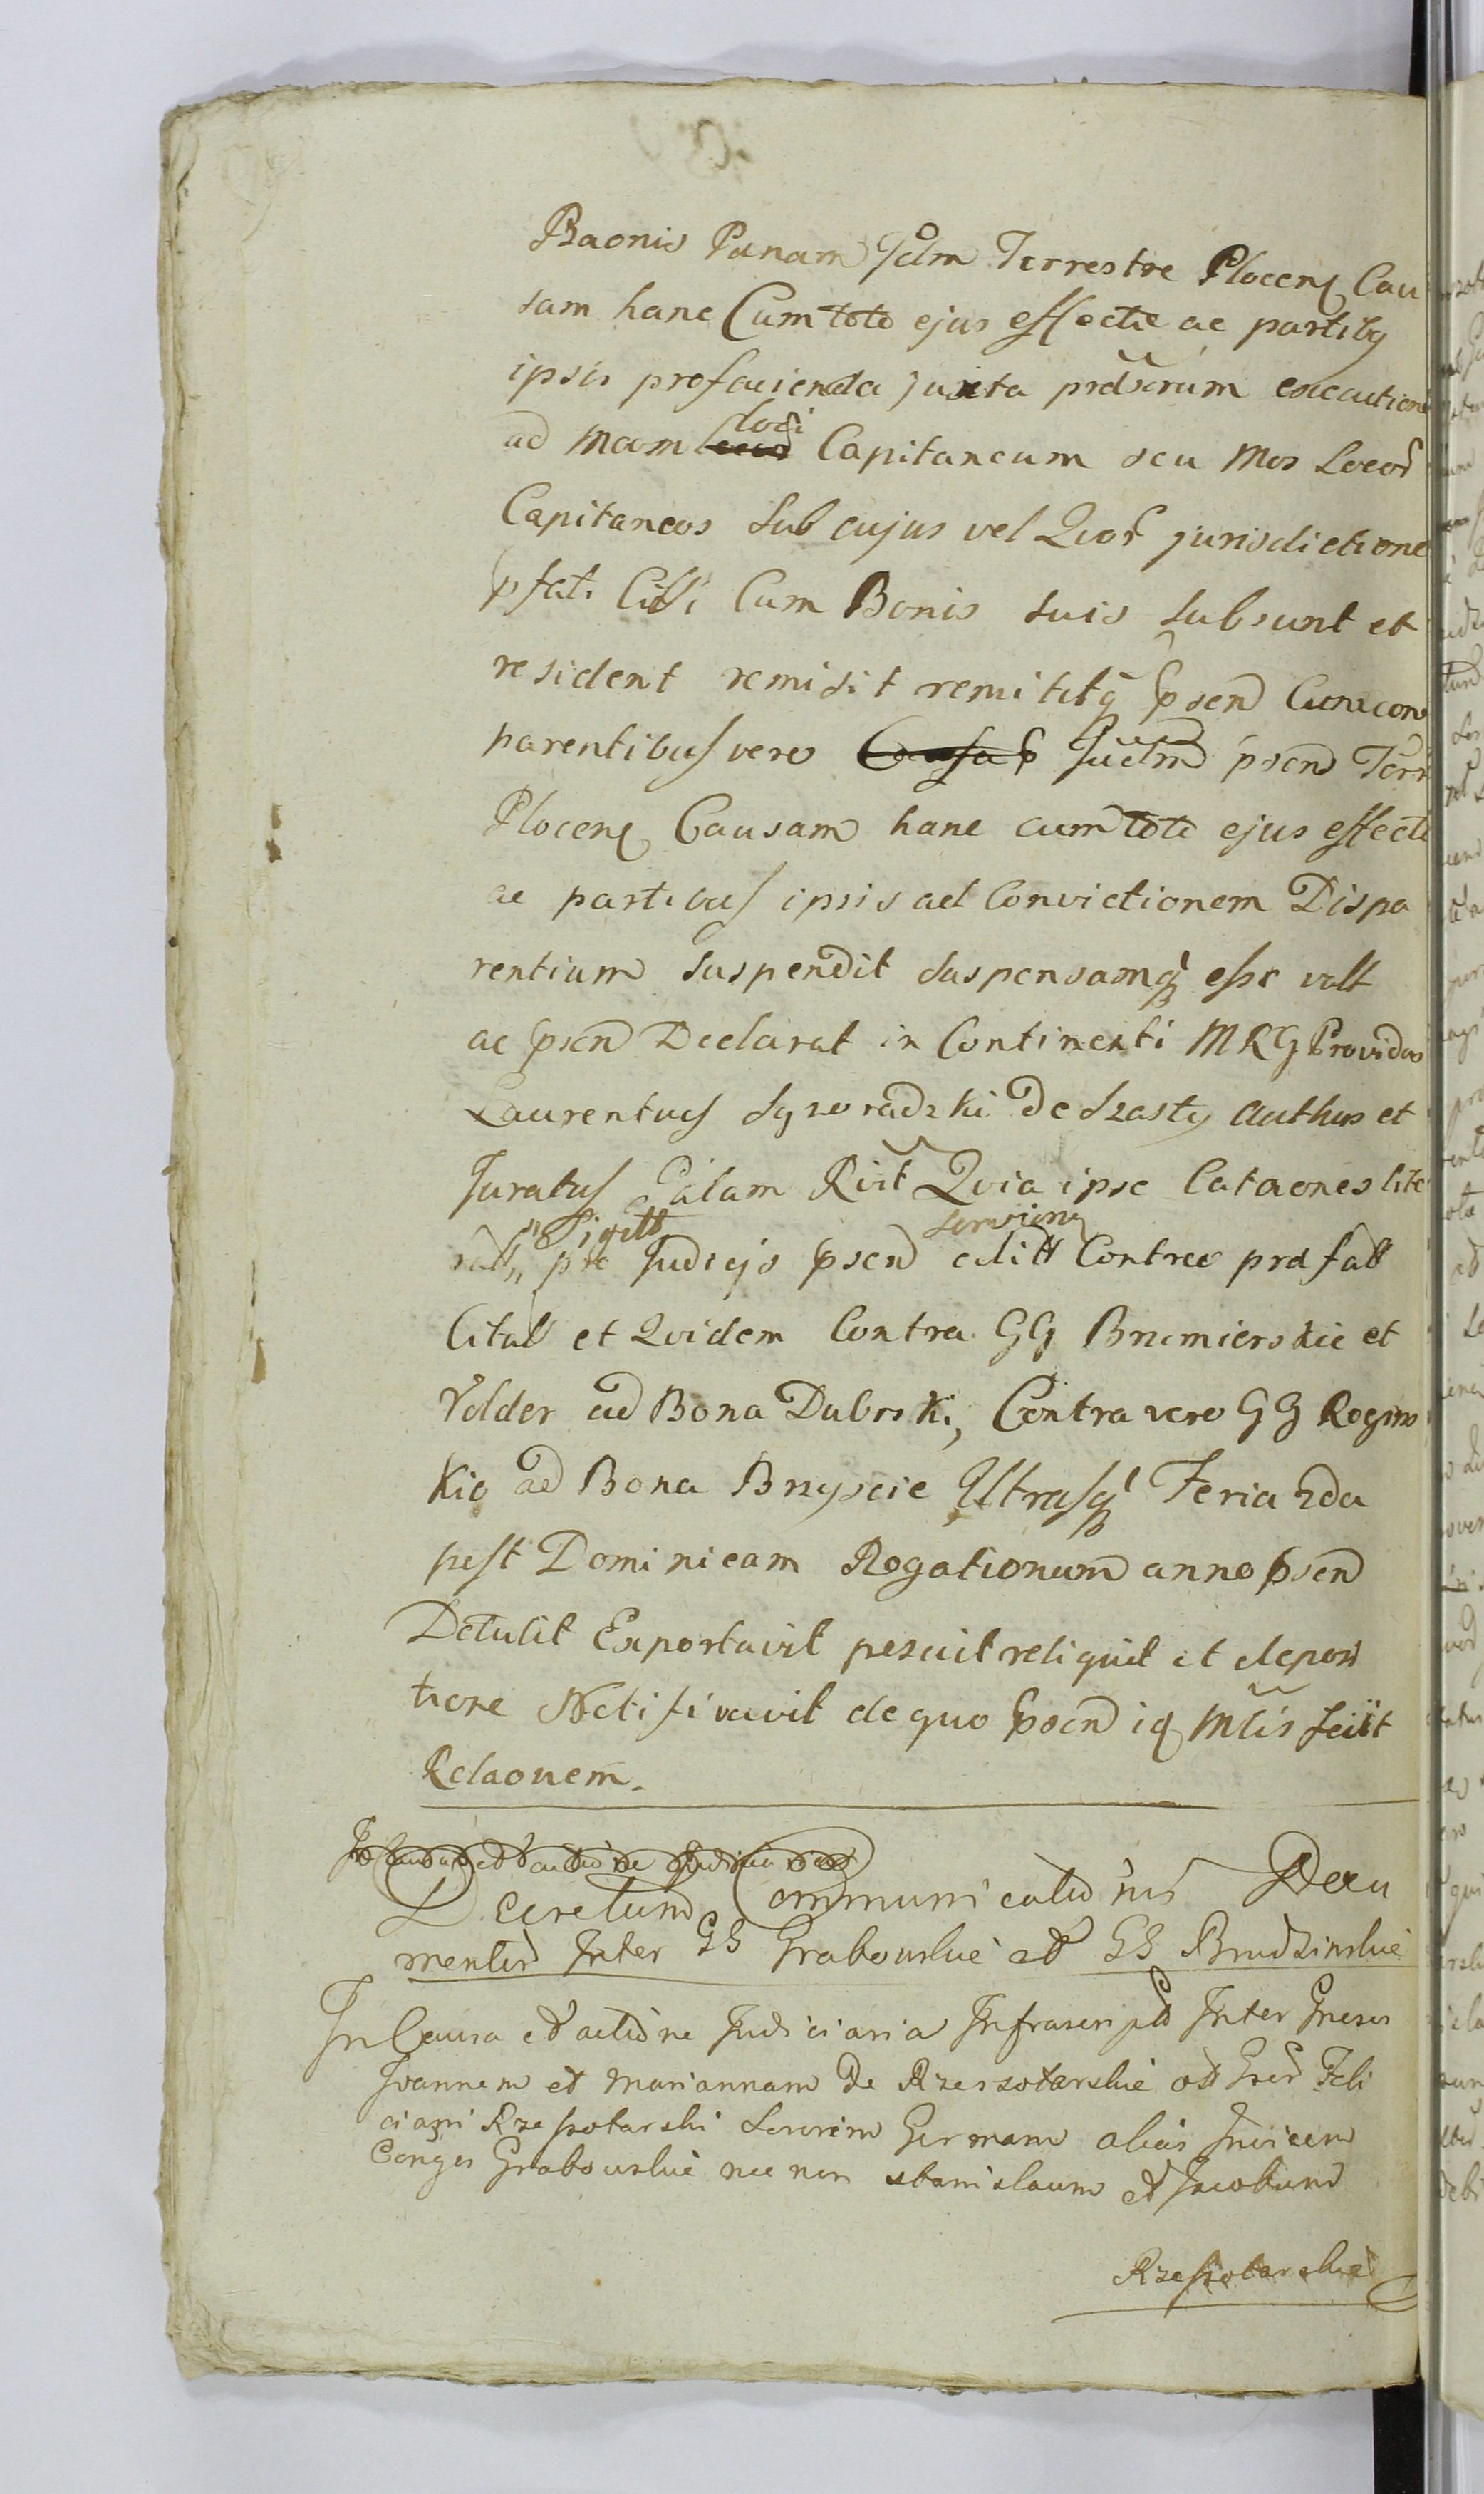 Baonis Panam Jdm Terrestre Plocen Cau
sam hanc Cum toto ejus effectu ac partibq
ipsis pro facienda juxta executione
ad Mam loci Capitaneum seu Mos Locor
Capitaneos Sub cujus vel Quor jurisdictione
pfati Citti Cum Bonis suis subsunt et
resident remisit remititq psen Cum com
parentibus vero Judm psen Terr
Plocen Causam hanc cum toto ejus effectu
ac partibus ipsis ad Convictionem Dispa
rentium suspendit suspensamq esse vult
ac psen Declarat in Continenti MRG Providus
Laurentius de Szasty Authus et
Juratus Palam Rvit Quia ipse Cataones lite
Sigill serviens
rall, pre Judicjs psen editt Contra prefatt
Citatt et Quidem Contra GG Brumierskie et
Volder ad Bona Dubrski, Contra vero GG Rogins
kie ad Bona Brzyscie Ultrasq Feria 2da
post Dominicam Rogationum anno psen
Detulit Exportavit posuit reliquit et de posi
tione Notificavit de quo psen iq Mlis feiit
Relaonem.
In Causa et actione Judiciaria
Decretum Communicationis Docu
mentor Inter GG Grabowskie et GG Brudzinskie
In Causa et actione Judiciaria Infrascript Inter Gnesos
Joannem et Mariannam De Rzeszotarskie ott Gnsd Feli
ciani Rzeszotarski Sororem Germam alias Invicem
Conges Grabowskie nec non Stanislaum et Jacobum
Rzeszotarskie